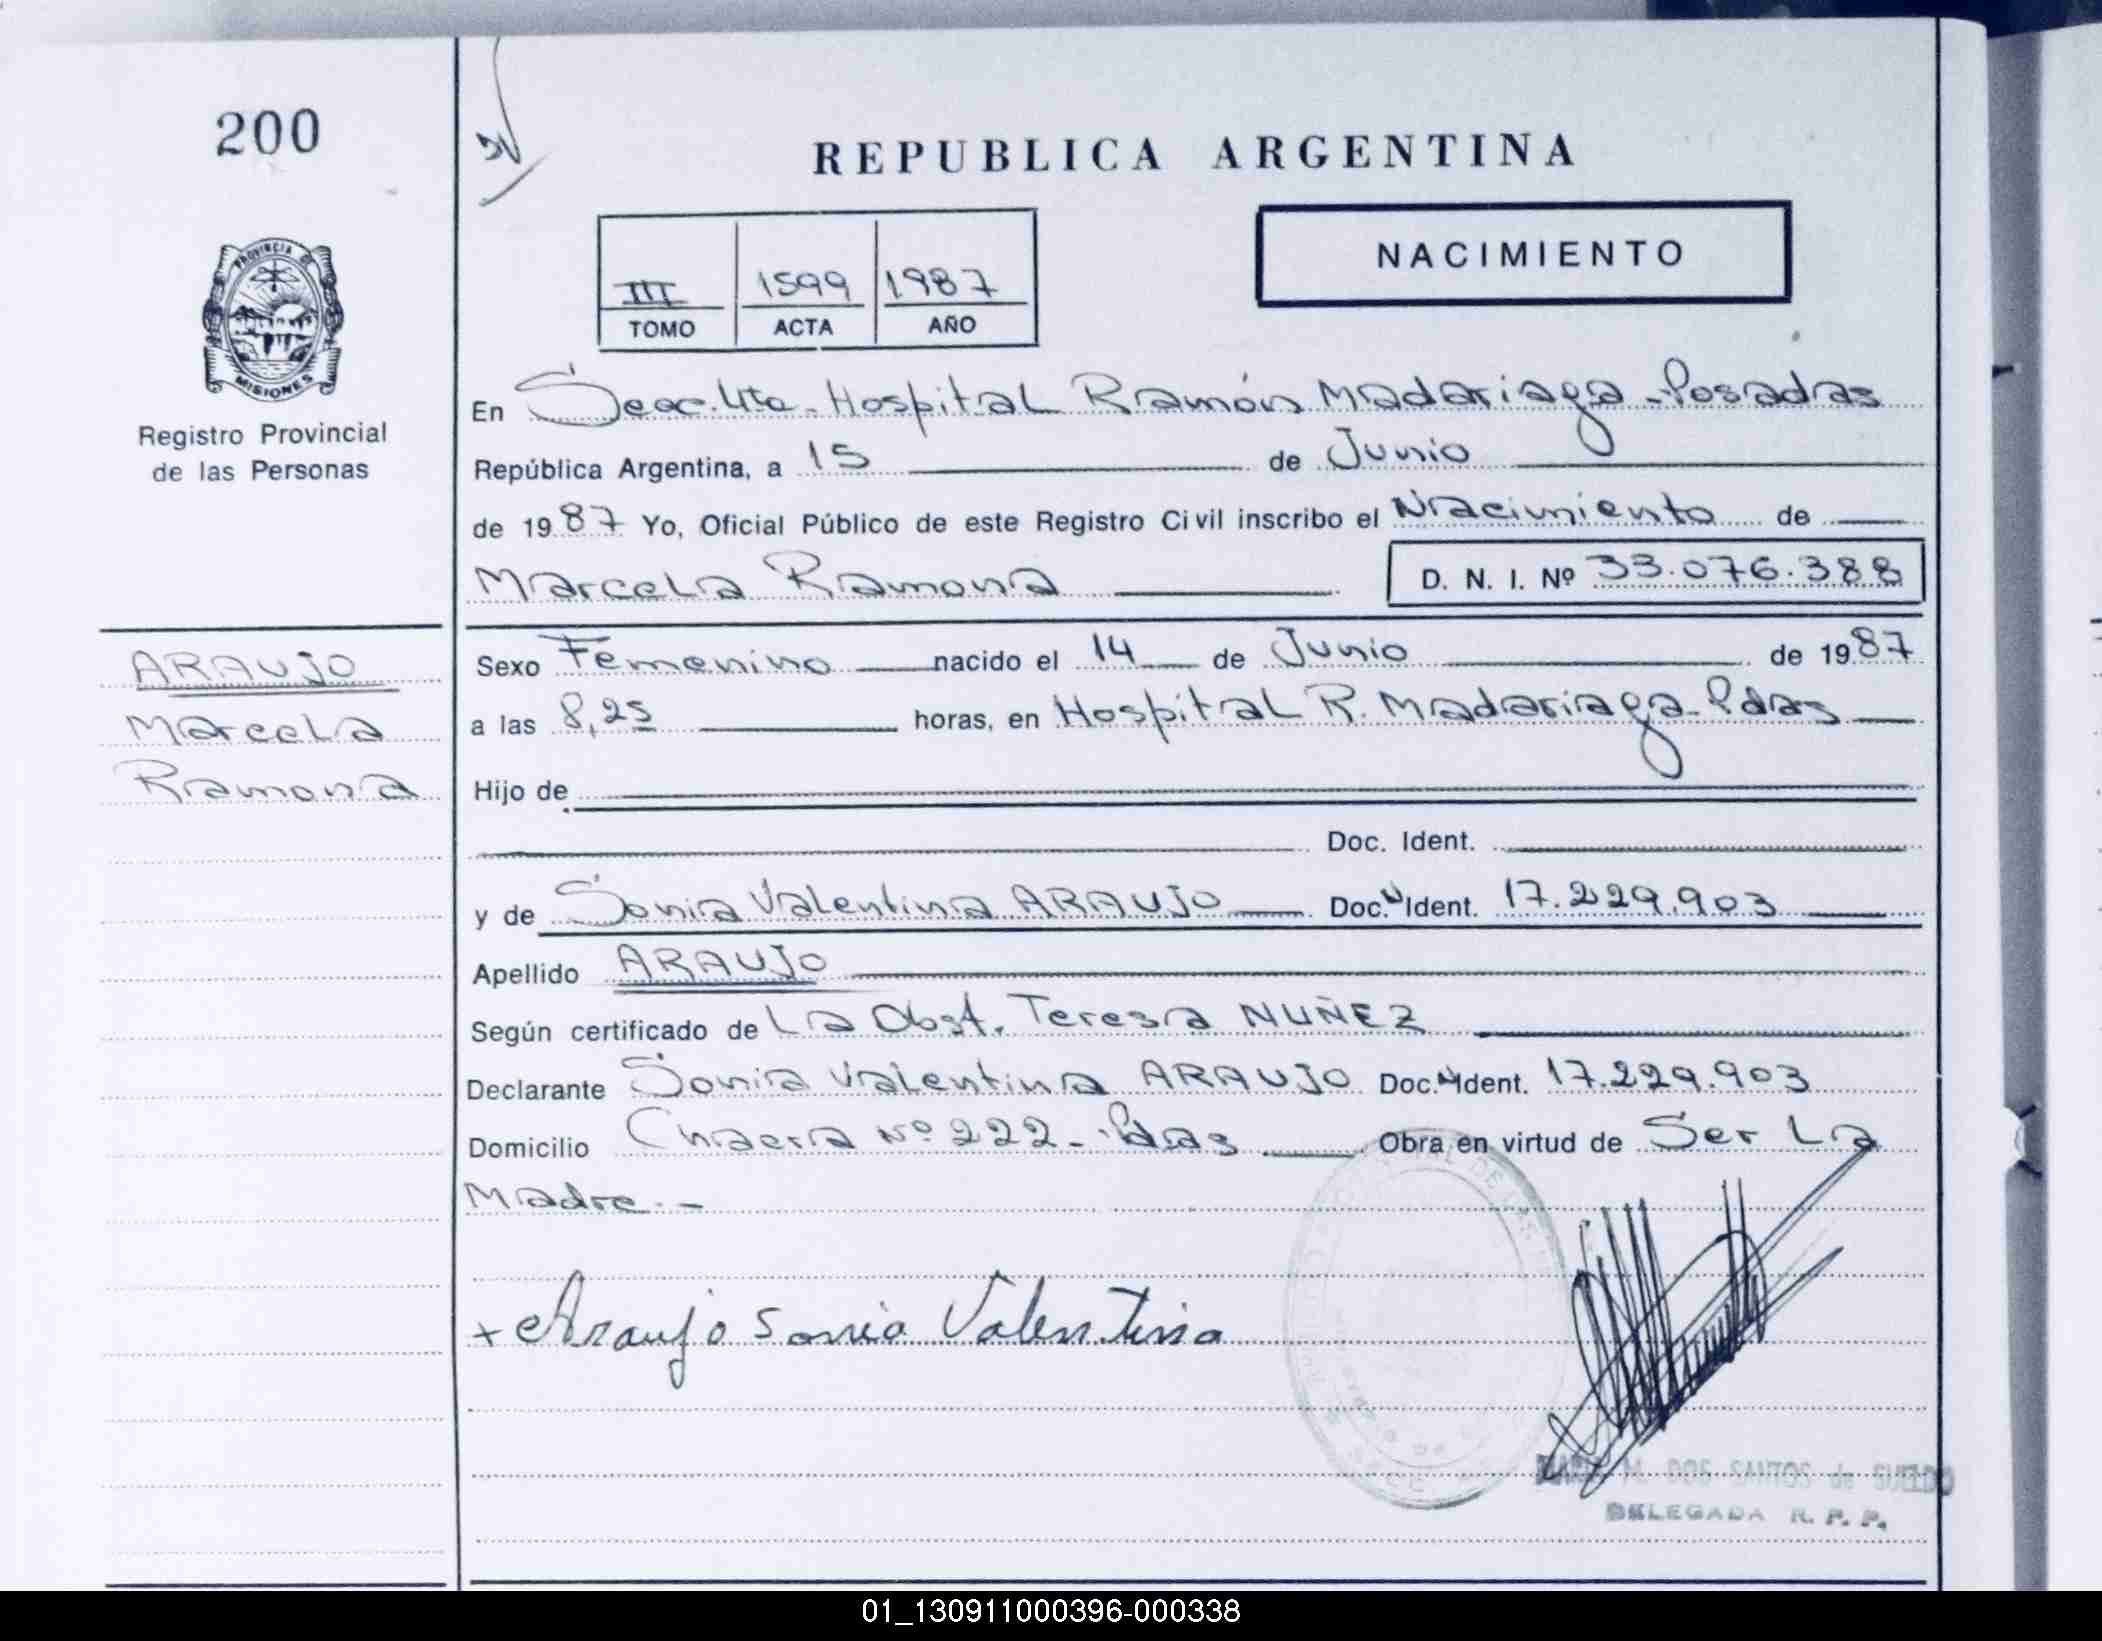 200
REPUBLICA ARGENTINA
III 1599 1987
TOMO ACTA AÑO
NACIMIENTO
PROVINCIA DE
MISIONES
Registro Provincial
de las Personas
En Secc. 4ta. Hospital Ramón Madariaga - Posadas
República Argentina, a 15 de Junio
de 1987 Yo, Oficial Público de este Registro Civil inscribo el Nacimiento de
Marcela Ramona D. N. I. Nº 33.076.388
ARAUJO
Marcela
Ramona
Sexo Femenino nacido el 14 de Junio de 1987
a las 8,25 horas, en Hospital R. Madariaga - Pdas
Hijo de
Doc. Ident.
y de Sonia Valentina ARAUJO Doc. Ident. 17.229.903
Apellido ARAUJO
Según certificado de La Obst. Teresa NUÑEZ
Declarante Sonia Valentina ARAUJO Doc. Ident. 17.229.903
Domicilio Chacra Nº 222 - Pdas Obra en virtud de Ser La
Madre. -
x Araujo Sonia Valentina
M. DOS SANTOS de SUELDO
DELEGADA R. P. P.
01_130911000396-000338